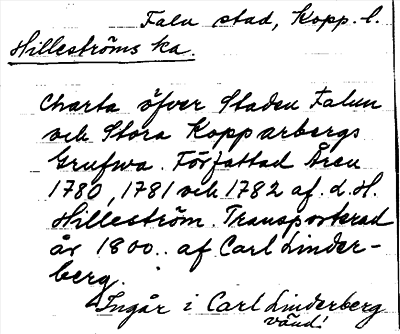 Falu stad, Kopp. l.
Hilleströms ka.
Charta öfver Staden Falun
och Stora Kopparbergs
Grufwa. Författad Åren
1780, 1781 och 1782 af. d. H.
Hilleström. Transporterad
år 1800.. af Carl Linder-
berg.
Ingår i Carl Linderberg
vänd!